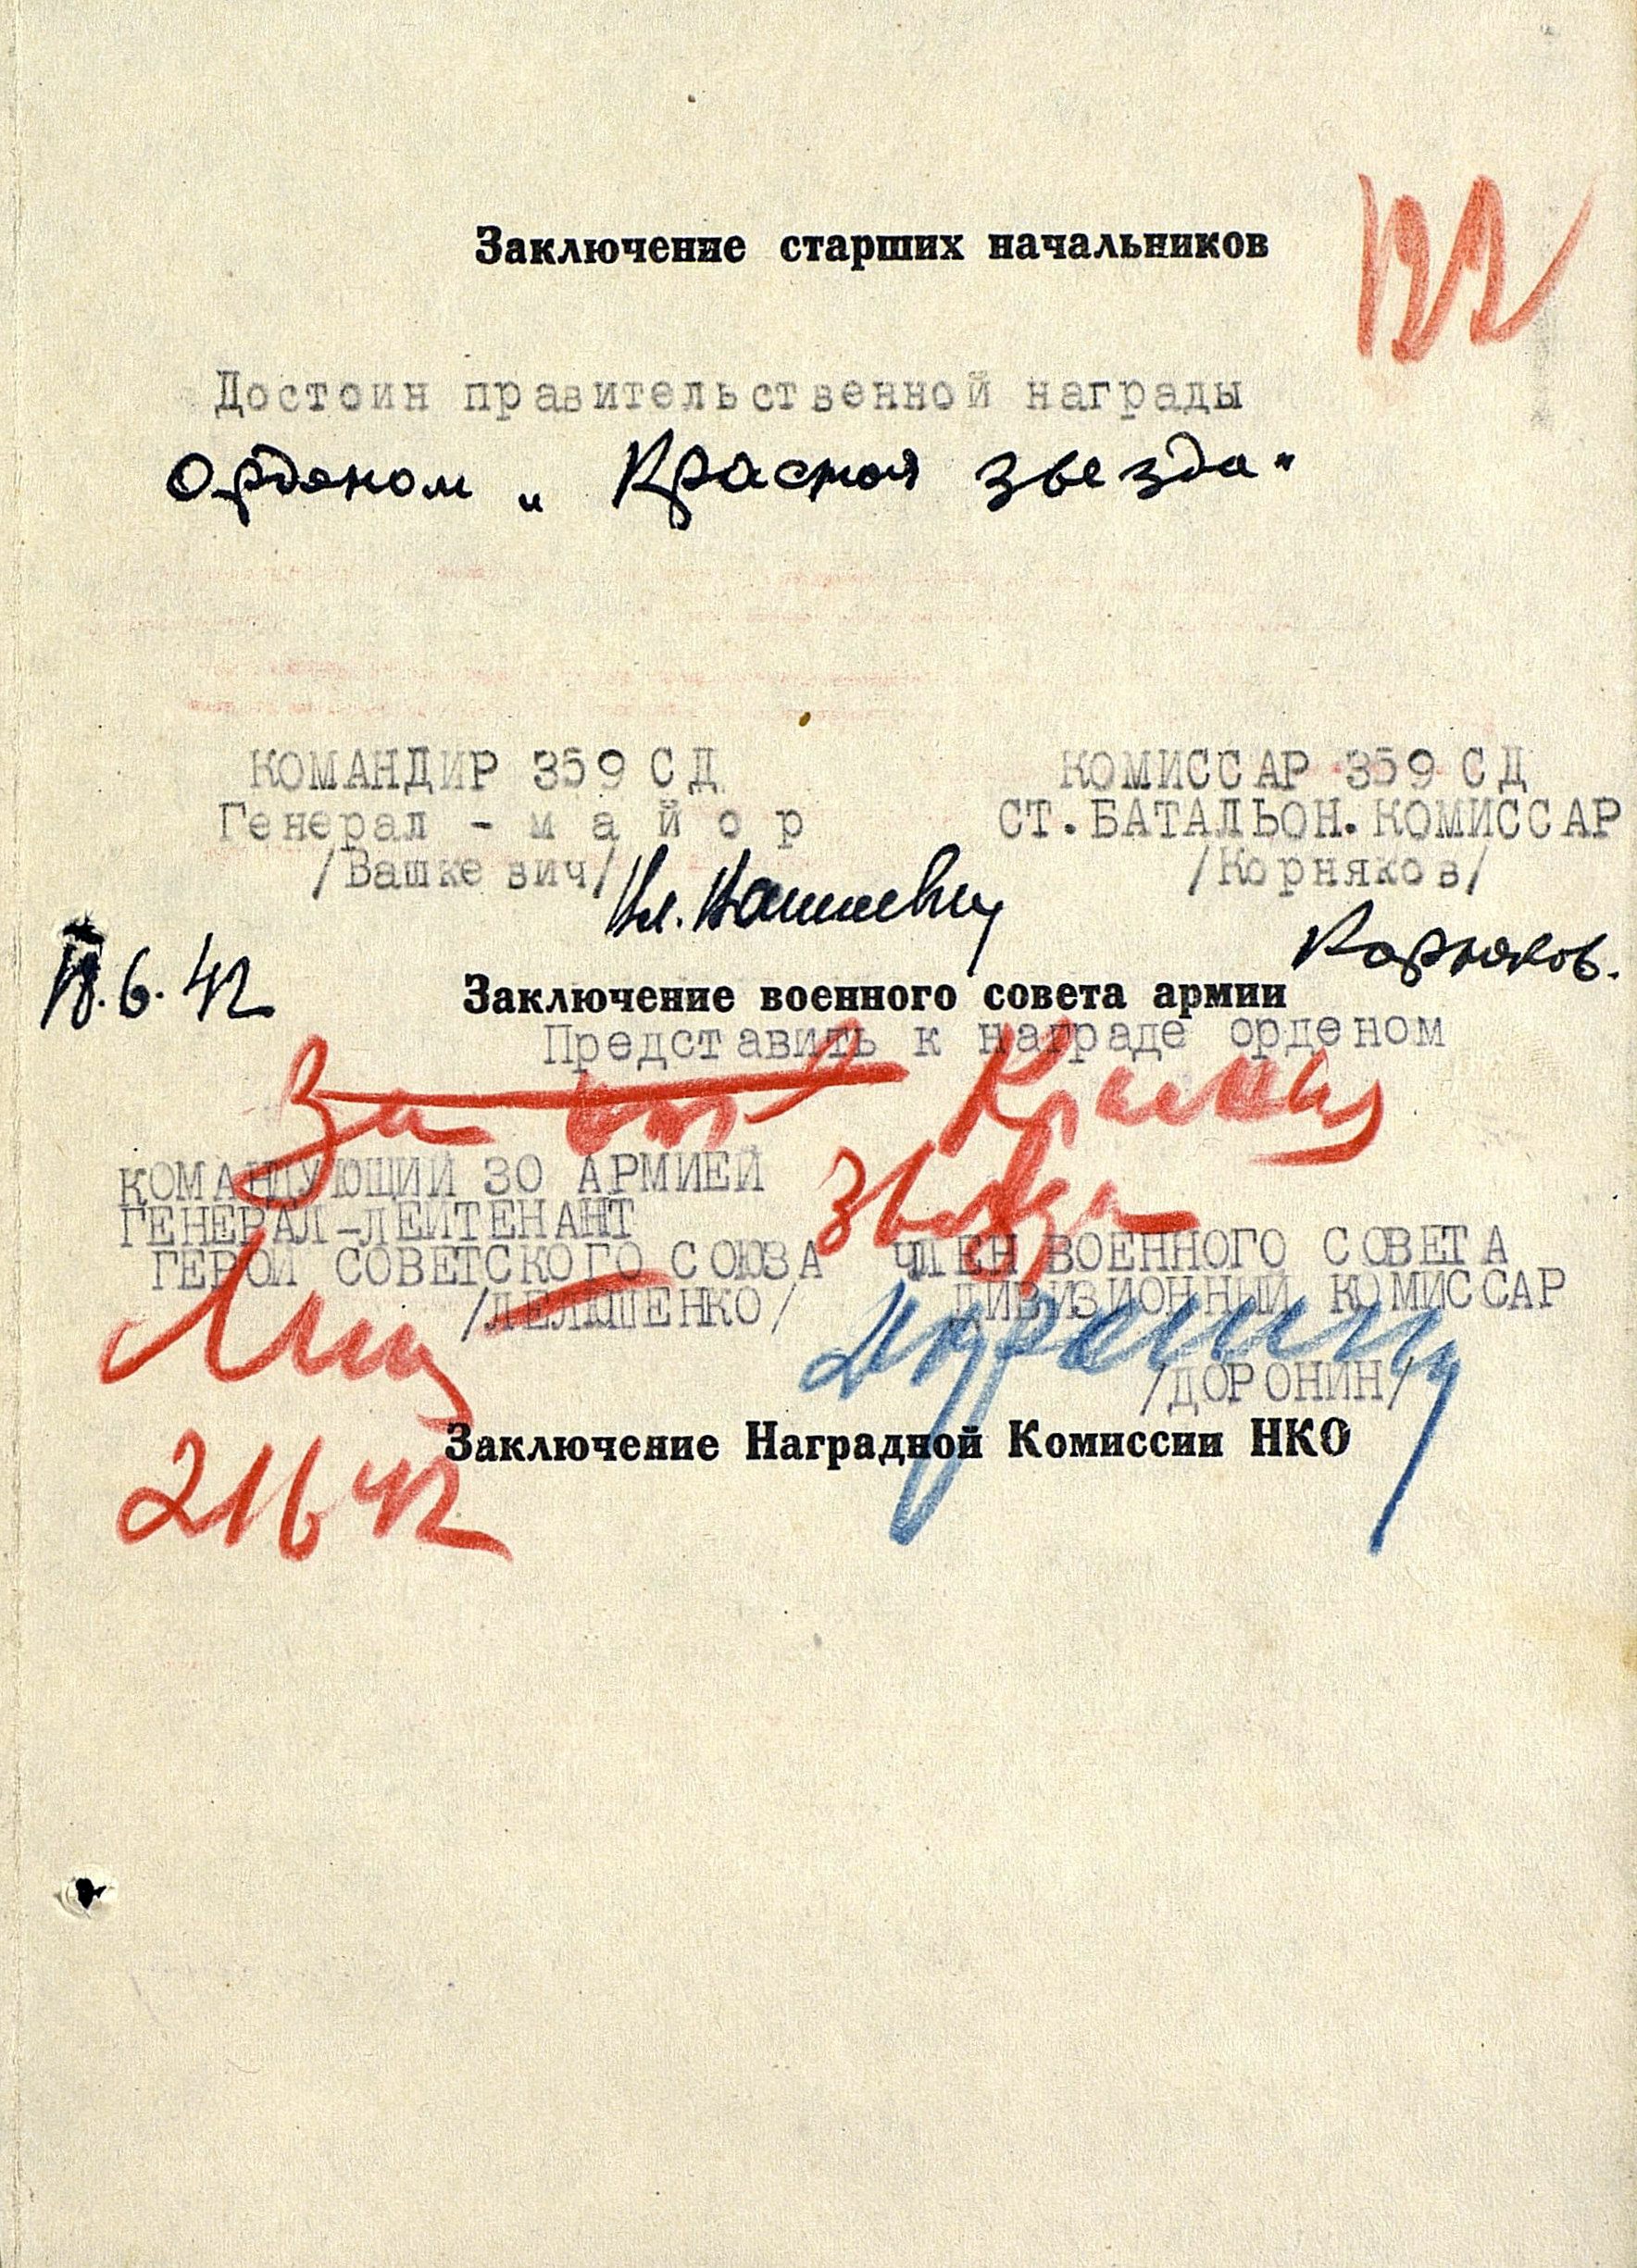 122
Заключение старших начальников
Достоин правительственной награды
орденом „Красная звезда“
КОМАНДИР 359 СД КОМИССАР 359 СД
Генерал - м а й о р СТ.БАТАЛЬОН.КОМИССАР
/Вашкевич/ Вл. Вашкевич /Корняков/
Корняков.
18.6.42
Заключение военного совета армии
Представить к награде орденом
За Красная
звезда
КОМАНДУЮЩИЙ 30 АРМИЕЙ
ГЕНЕРАЛ-ЛЕЙТЕНАНТ
ГЕРОЙ СОВЕТСКОГО СОЮЗА ЧЛЕН ВОЕННОГО СОВЕТА
/ЛЕЛЮШЕНКО/ ДИВИЗИОННЫЙ КОМИССАР
Доронин
/ДОРОНИН/
Заключение Наградной Комиссии НКО
21 6 42